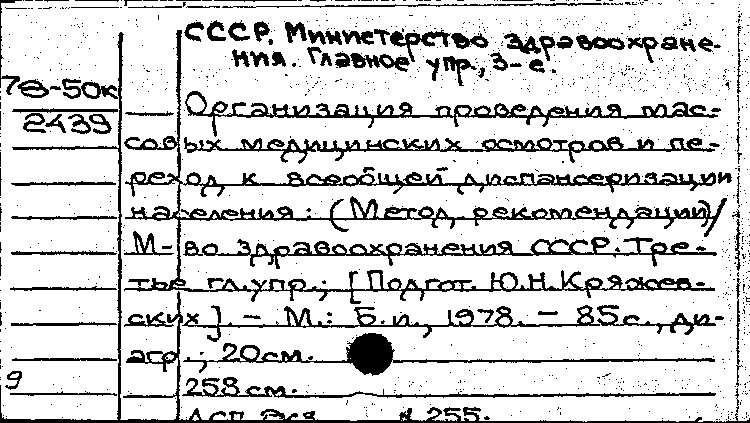 СССР. Министерство здравоохране-
ния. Главное упр., 3-е.
78-50к
2439
Организация проведения мас-
совых медицинских осмотров и пе-
реход к всеобщей диспансеризации
населения: (Метод. рекомендации)/
М-во здравоохранения СССР. Тре-
тье гл. упр.; [Подгот. Ю.Н. Кряжев-
ских]. - М.: Б.и., 1978. - 85с., ди-
агр.; 20см.
9
258см.
255.